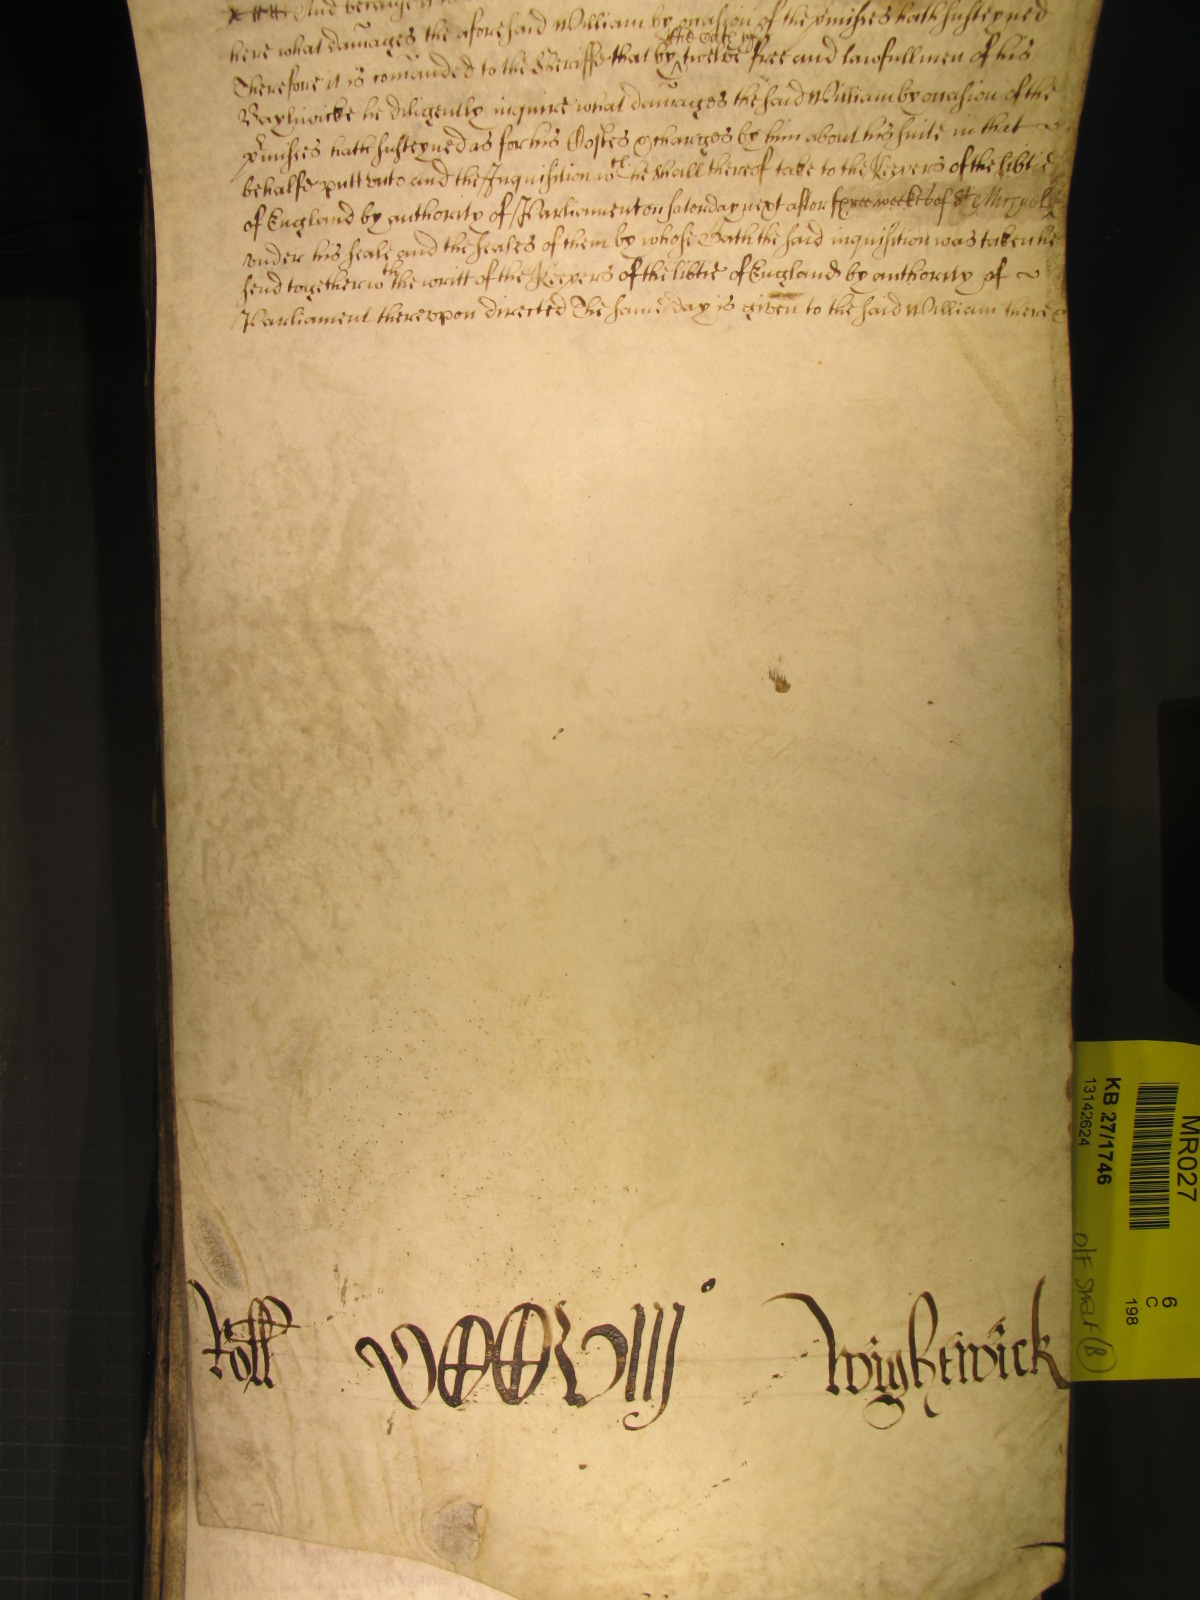 And because it
here what damages the aforesaid William by occasion of the p̱misses hath susteyned
Therefore it is com̄anded to the Sheriffe that by the oath of twelve free and lawfull men of his
Baylywicke he diligently inquire what damages the said William by occasion of the
p̱misses hath susteyned as for his Costes & charges by him about his suite in that
behalfe putt unto and the Inquisition wch he shall thereof take to the Keepers of the libtie
of England by authority of Parliament on Saturday next after three weekes of St Michael
under his seale and the seales of them by whose Oath the said inquisition was taken he
send together wth the writt of the Keepers of the libtie of England by authority of
Parliament thereupon directed The same day is given to the said William there &c
Roll Wightwick
MR027
KB 27/1746
13142624
6
C
198